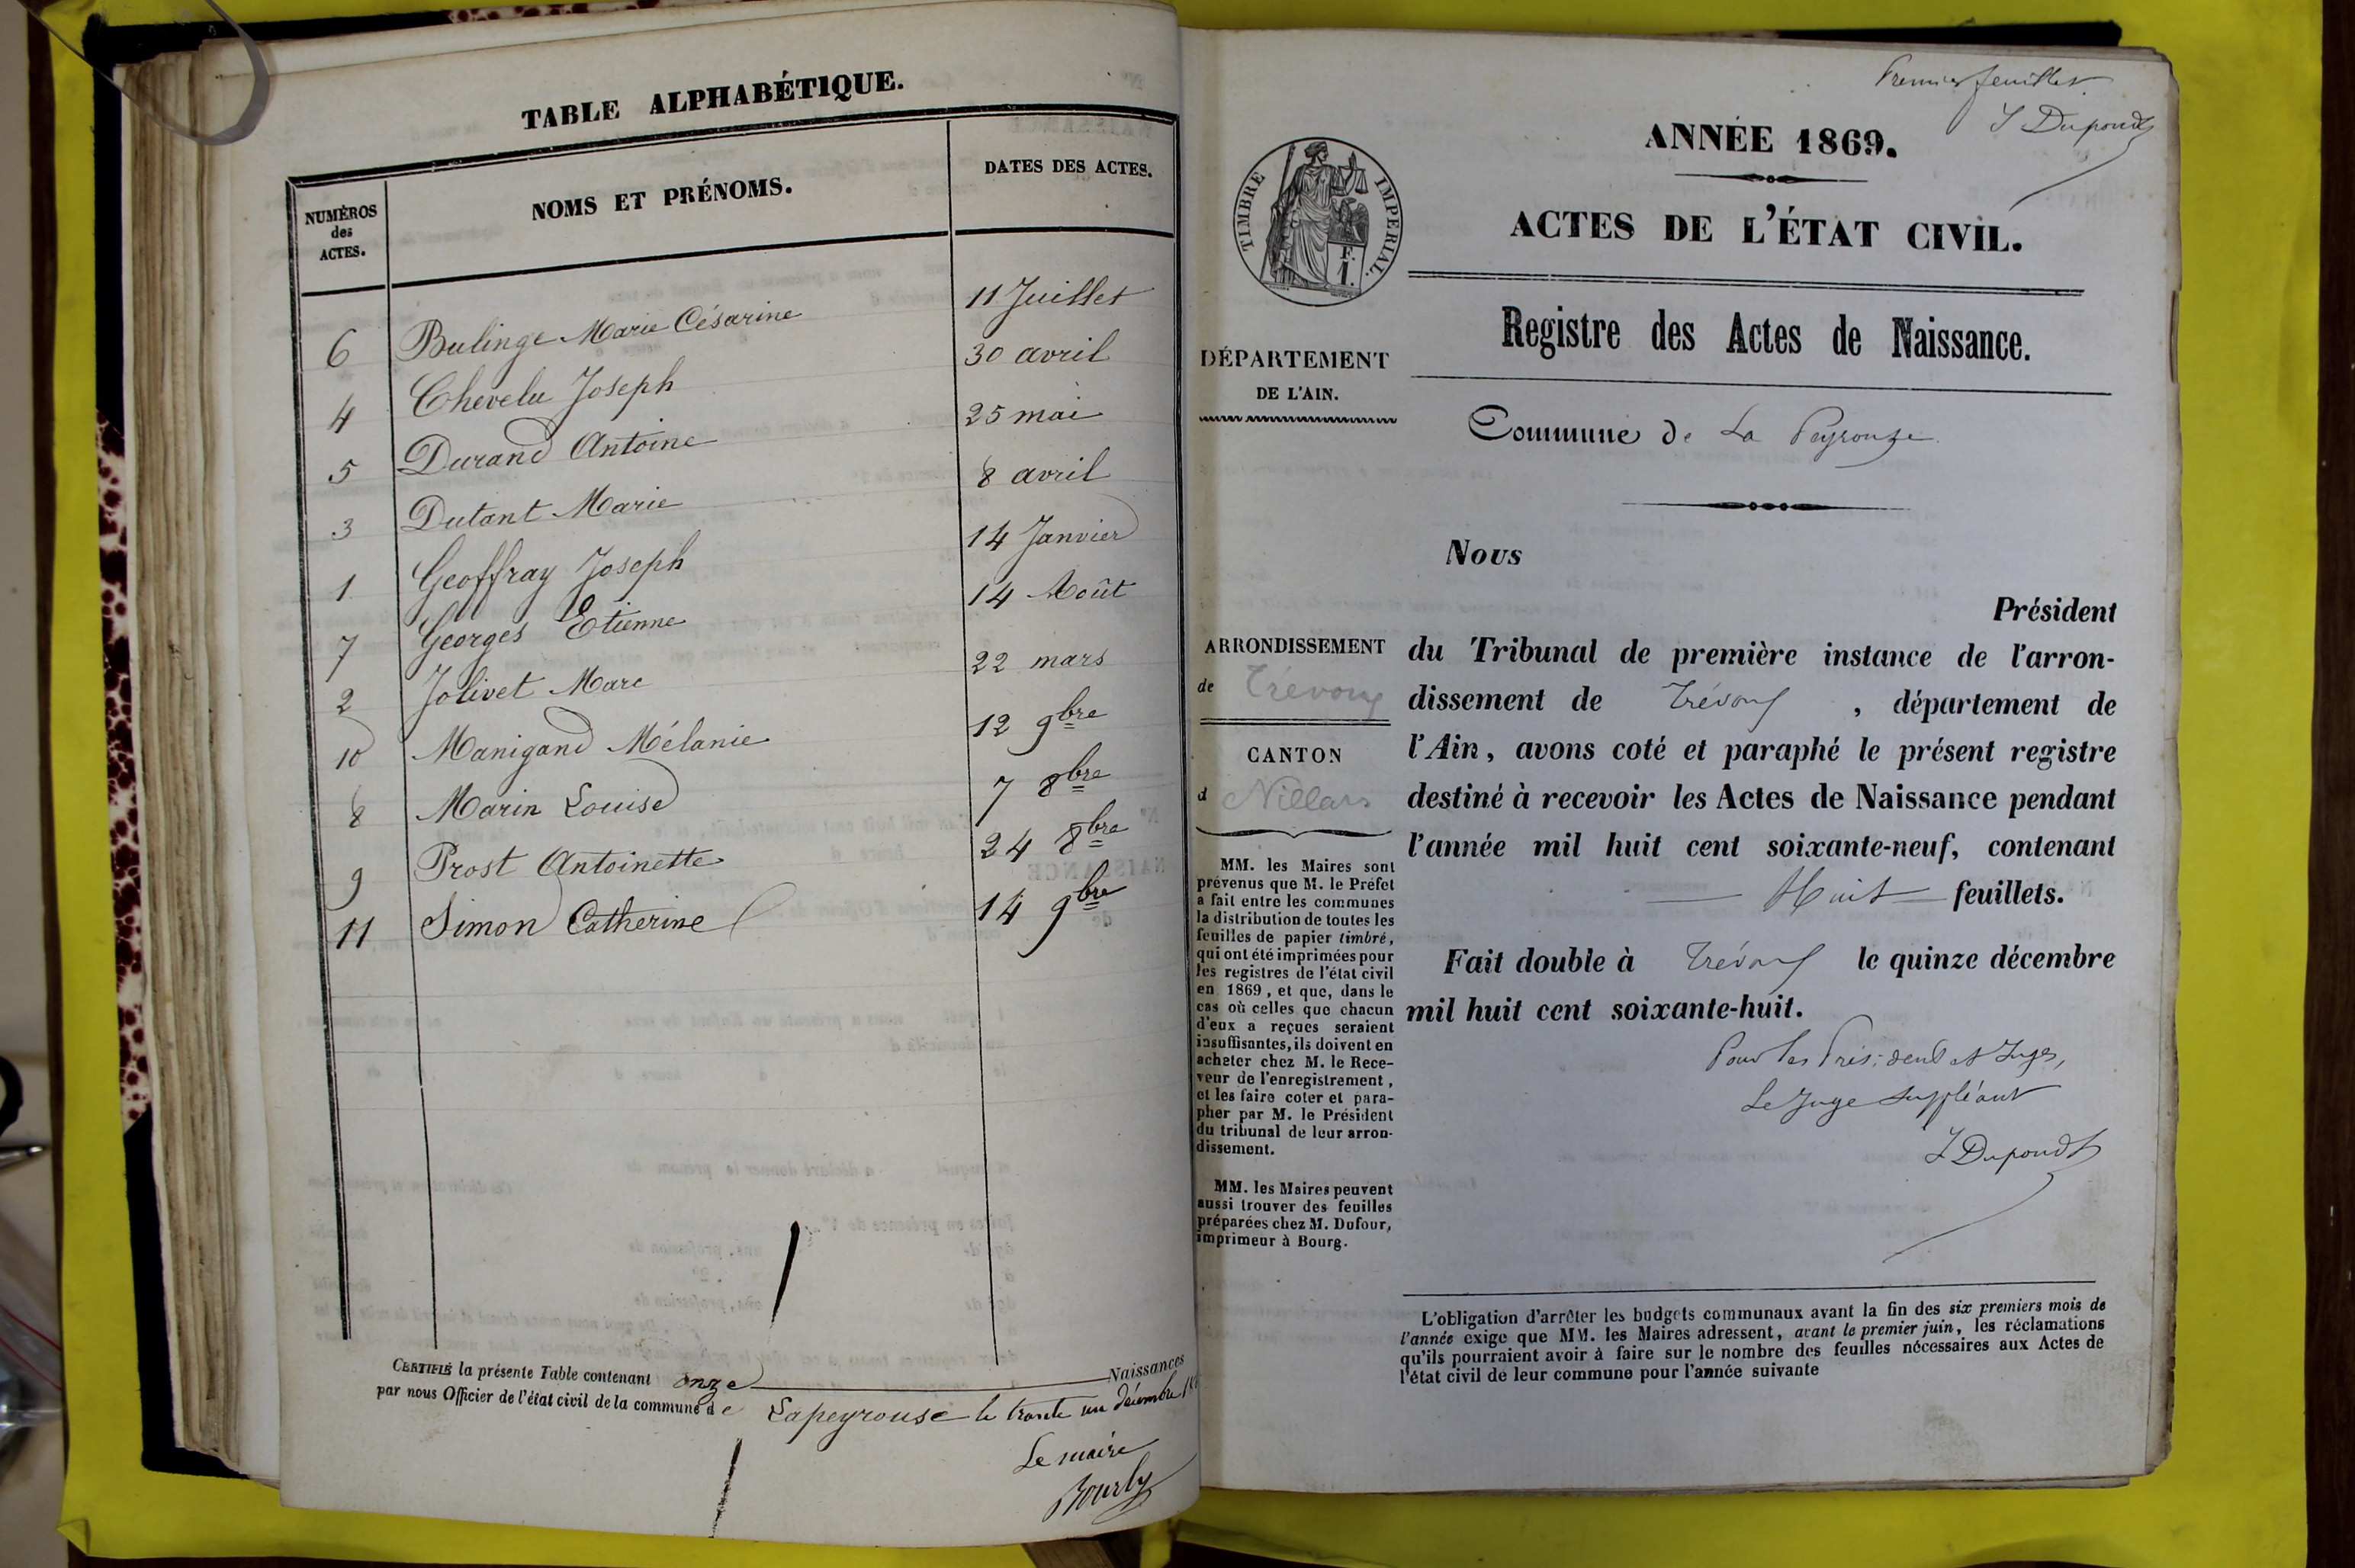 TABLE ALPHABÉTIQUE.
NUMÉROS des ACTES.
NOMS ET PRÉNOMS.
DATES DES ACTES.
6 Bulinge Marie Césarine 11 Juillet
4 Chevelu Joseph 30 avril
5 Durand Antoine 25 mai
3 Dutant Marie 8 avril
1 Geoffray Joseph 14 Janvier
7 Georges Etienne 14 Août
2 Jolivet Marc 22 mars
10 Manigand Mélanie 12 9bre
8 Marin Louise 7 8bre
9 Prost Antoinette 24 8bre
11 Simon Catherine 14 9bre
CERTIFIÉ la présente Table contenant onze Naissances
par nous Officier de l'état civil de la commune de Lapeyrouse le trente un décembre
Le maire
Bourly
Premier feuillet.
J Dupond
ANNÉE 1869.
ACTES DE L'ÉTAT CIVIL.
Registre des Actes de Naissance.
Commune de La Peyrouze
TIMBRE IMPERIAL.
F.
1.
DÉPARTEMENT
DE L'AIN.
ARRONDISSEMENT
de Trévoux
CANTON
d Villars
MM. les Maires sont
prévenus que M. le Préfet
a fait entre les communes
la distribution de toutes les
feuilles de papier timbré,
qui ont été imprimées pour
les registres de l'état civil
en 1869, et que, dans le
cas où celles que chacun
d'eux a reçues seraient
insuffisantes, ils doivent en
acheter chez M. le Rece-
veur de l'enregistrement,
et les faire coter et para-
pher par M. le Président
du tribunal de leur arron-
dissement.
MM. les Maires peuvent
aussi trouver des feuilles
préparées chez M. Dufour,
imprimeur à Bourg.
Nous
Président
du Tribunal de première instance de l'arron-
dissement de Trévoux, département de
l'Ain, avons coté et paraphé le présent registre
destiné à recevoir les Actes de Naissance pendant
l'année mil huit cent soixante-neuf, contenant
Huit feuillets.
Fait double à Trévoux le quinze décembre
mil huit cent soixante-huit.
Pour les Président et Juges,
Le Juge suppléant
J Dupond
L'obligation d'arrêter les budgets communaux avant la fin des six premiers mois de
l'année exige que MM. les Maires adressent, avant le premier juin, les réclamations
qu'ils pourraient avoir à faire sur le nombre des feuilles nécessaires aux Actes de
l'état civil de leur commune pour l'année suivante